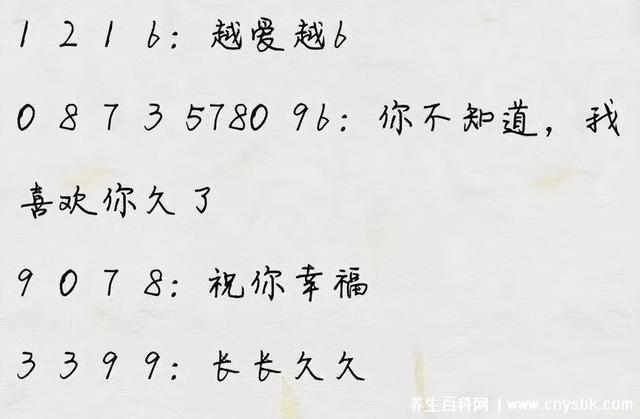 1 2 1 6：越爱越6
0 8 7 3 5780 96：你不知道，我
喜欢你久了
9 0 7 8：祝你幸福
3 3 9 9：长长久久
养生百科网 www.cnysbk.com